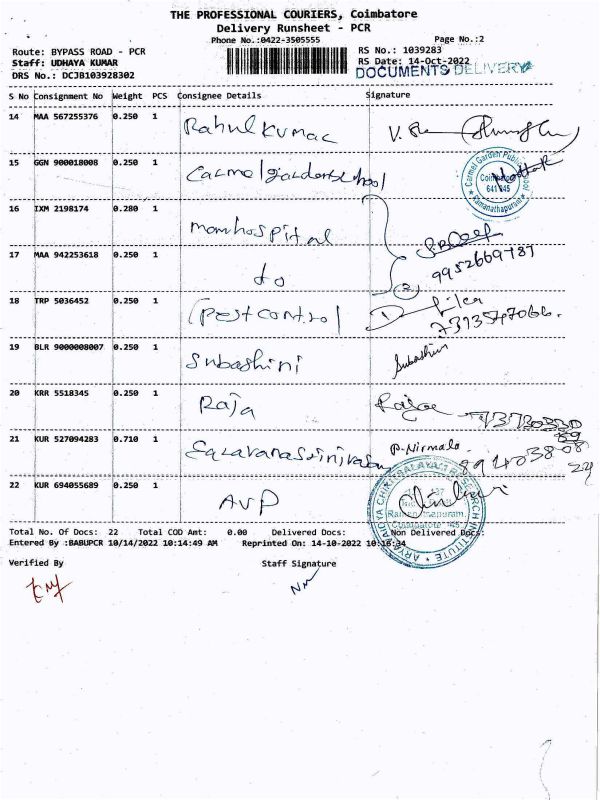 THE PROFESSIONAL COURIERS, Coimbatore
Delivery Runsheet - PCR
Phone No.:0422-3505555
Page No.:2
Route: BYPASS ROAD - PCR
RS No.: 1039283
Staff: UDHAYA KUMAR
RS Date: 14-Oct-2022
DOCUMENTS DELIVERY
DRS No.: DCJB103928302
S No Consignment No Weight PCS Consignee Details Signature
14 MAA 567255376 0.250 1 Rahul Kumar
15 GGN 900018008 0.250 1 Carmel garden school
Carmel Garden Public School
Coimbatore
641 045
Ramanathapuram
16 IXM 2198174 0.280 1 momhospital
17 MAA 942253618 0.250 1 to
9952669787
(2)
18 TRP 5036452 0.250 1 (Pestcontrol
19 BLR 9000008007 0.250 1 Subashini Subashini
20 KRR 5518345 0.250 1 Raja Raja
21 KUR 527094283 0.710 1 P. Nirmala
22 KUR 694055689 0.250 1 AVP
ARYAVAIDYA CHIKITSALAYAM RESEARCH INSTITUTE
Ramanathapuram,
Coimbatore
Total No. Of Docs: 22 Total COD Amt: 0.00 Delivered Docs: Non Delivered Docs:
Entered By :BABUPCR 10/14/2022 10:14:49 AM Reprinted On: 14-10-2022
Verified By Staff Signature